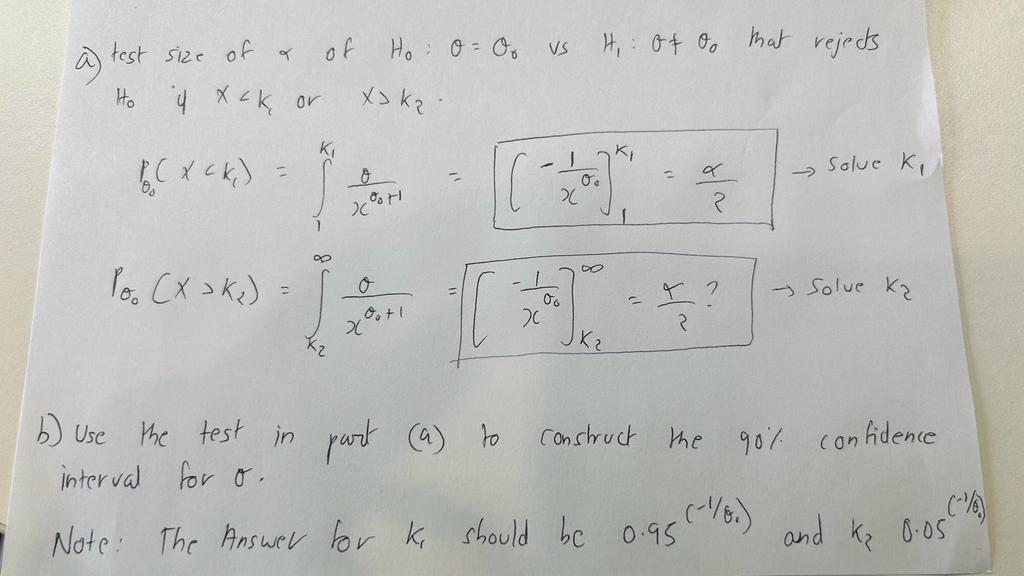 a) test size of α of H₀ : θ = θ₀ vs H₁ : θ ≠ θ₀ that rejects
H₀ if X < k₁ or X > k₂ .
P_θ₀ ( X < k₁) = ∫₁^k₁ θ / x^(θ₀+1) = [ - 1 / x^θ₀ ]₁^k₁ = α / 2 → Solve K₁
P_θ₀ (X > k₂) = ∫_k₂^∞ θ / x^(θ₀+1) = [ - 1 / x^θ₀ ]_k₂^∞ = α / 2 ? → Solve K₂
b) Use the test in part (a) to construct the 90% confidence
interval for θ .
Note: The Answer for K₁ should be 0.95^(-1/θ₀) and k₂ 0.05^(-1/θ₀)